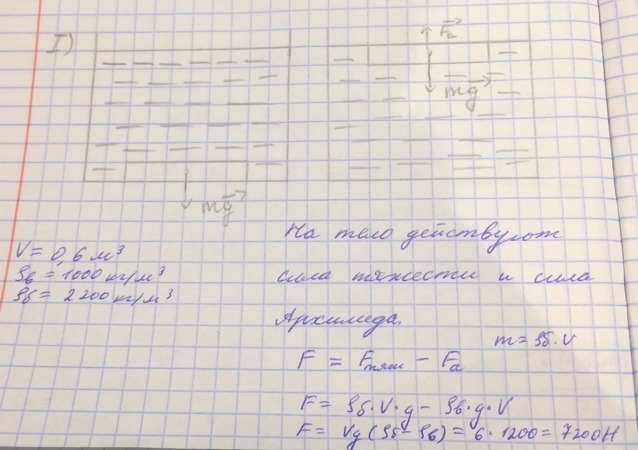 I)
F⃗a
mg⃗
mg⃗
V = 0,6 м³
ρв = 1000 кг/м³
ρб = 2200 кг/м³
На тело действуют
сила тяжести и сила
Архимеда.
m = ρб · V
F = Fтяж − Fa
F = ρб · V · g − ρв · g · V
F = Vg (ρб − ρв) = 6 · 1200 = 7200Н